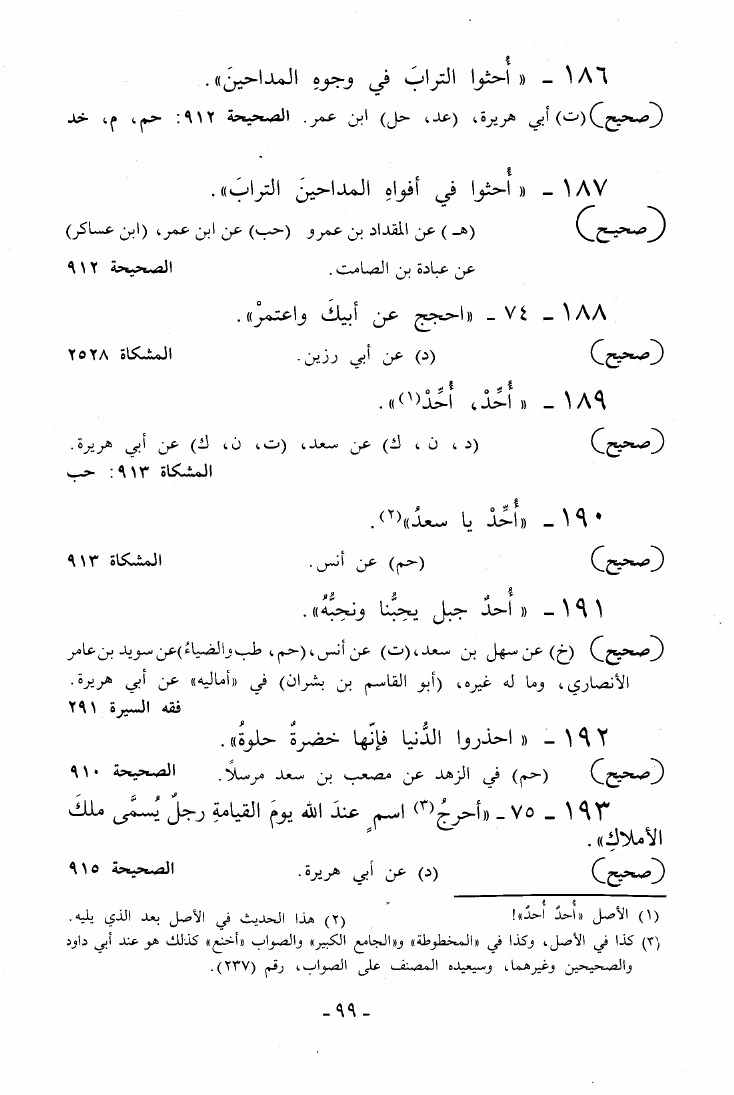 ١٨٦ ـ « أُحثوا الترابَ في وجوهِ المداحينَ».
(صحيح) (ت) أبي هريرة، (عد، حل) ابن عمر. الصحيحة ٩١٢: حم، م، خد
١٨٧ ـ « أُحثوا في أفواهِ المداحينَ الترابَ».
(صحيح) (هـ) عن المقداد بن عمرو (حب) عن ابن عمر، (ابن عساكر)
عن عبادة بن الصامت. الصحيحة ٩١٢
١٨٨ ـ ٧٤ ـ «احجج عن أبيكَ واعتمرْ».
(صحيح) (د) عن أبي رزين. المشكاة ٢٥٢٨
١٨٩ ـ « أُحِّدْ، أُحِّدْ(١)».
(صحيح) (د، ن، ك) عن سعد، (ت، ن، ك) عن أبي هريرة.
المشكاة ٩١٣: حب
١٩٠ ـ «أُحِّدْ يا سعدُ»(٢).
(صحيح) (حم) عن أنس. المشكاة ٩١٣
١٩١ ـ « أُحدٌ جبل يحبُّنا ونحبُّهُ».
(صحيح) (خ) عن سهل بن سعد، (ت) عن أنس، (حم، طب والضياء) عن سويد بن عامر
الأنصاري، وما له غيره، (أبو القاسم بن بشران) في «أماليه» عن أبي هريرة.
فقه السيرة ٢٩١
١٩٢ ـ « احذروا الدُّنيا فإنّها خضرةٌ حلوةٌ».
(صحيح) (حم) في الزهد عن مصعب بن سعد مرسلاً. الصحيحة ٩١٠
١٩٣ ـ ٧٥ ـ «أحرجُ(٣) اسمٍ عندَ الله يومَ القيامةِ رجلٌ يُسمَّى ملكَ
الأملاكِ».
(صحيح) (د) عن أبي هريرة. الصحيحة ٩١٥
(١) الأصل «أحدٌ أحدٌ»! (٢) هذا الحديث في الأصل بعد الذي يليه.
(٣) كذا في الأصل، وكذا في «المخطوطة» و«الجامع الكبير» والصواب «أخنع» كذلك هو عند أبي داود
والصحيحين وغيرهما، وسيعيده المصنف على الصواب، رقم (٢٣٧).
ـ ٩٩ ـ